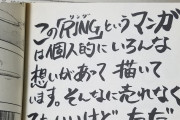 この「RING」というマンガ
リング
は個人的にいろんな
想いがあって 描いて
います。そんなに売れなく
てもいいけど ただ